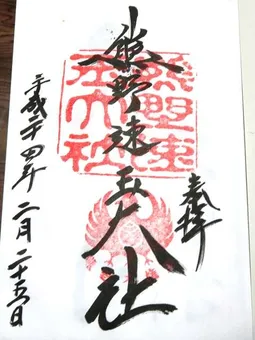 奉拝
熊野速玉大社
平成二十四年二月二十五日
熊野速玉大社